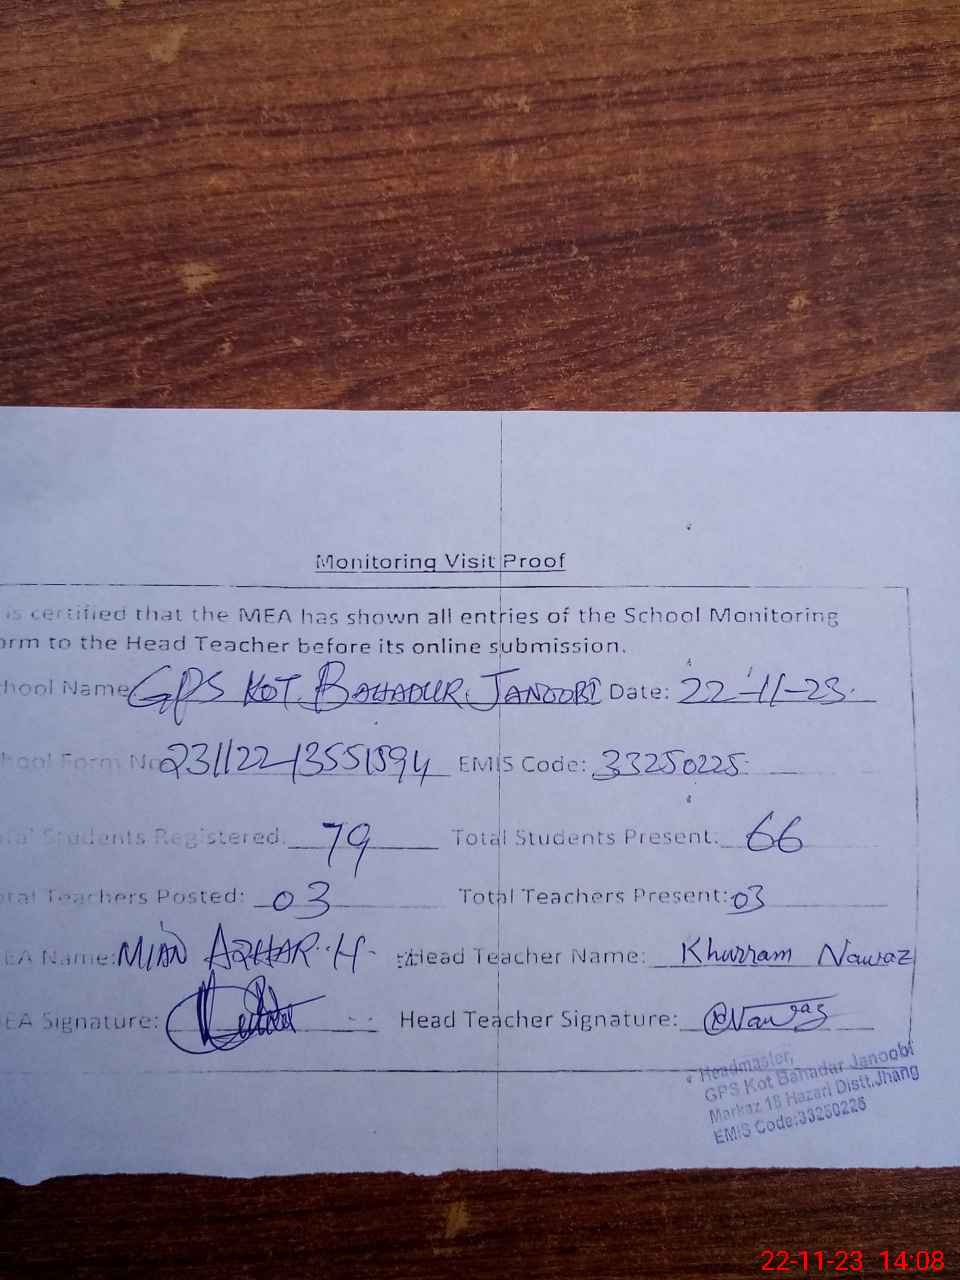 Monitoring Visit Proof
is certified that the MEA has shown all entries of the School Monitoring
orm to the Head Teacher before its online submission.
hool Name GPS KOT BAHADUR JANOOBI Date: 22-11-23.
hool Form No 231122-13551594 EMIS Code: 33250225
tal Students Registered: 79 Total Students Present: 66
otal Teachers Posted: 03 Total Teachers Present: 03
EA Name: MIAN AZHAR H. Head Teacher Name: Khurram Nawaz
EA Signature: Head Teacher Signature: Nawaz
Headmaster,
GPS Kot Bahadar Janoobi
Markaz 18 Hazari Distt.Jhang
EMIS Code:33250225
22-11-23 14:08